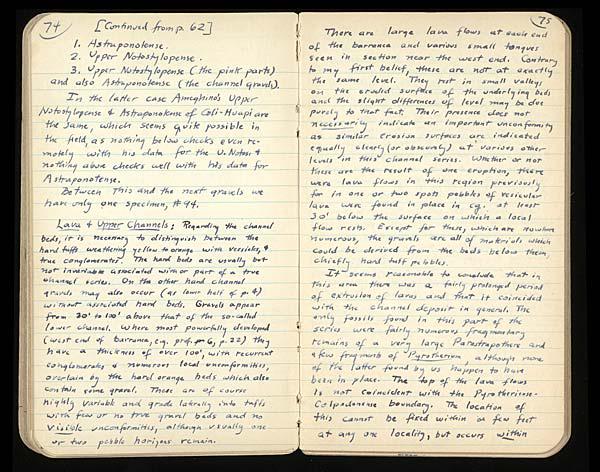 74
[Continued from p. 62]
1. Astraponotense.
2. Upper Notostylopense.
3. Upper Notostylopense (the pink parts)
and also Astraponotense (the channel gravels).
In the latter case Ameghino's Upper
Notostylopense & Astraponotense of Coli-Huapi are
the same, which seems quite possible in
the field, as nothing below checks even re-
motely with his data for the U. Notost. &
nothing above checks well with his data for
Astraponotense.
Between this and the next gravels we
have only one specimen, #94.
Lava & Upper Channels: Regarding the channel
beds, it is necessary to distinguish between the
hard tuffs weathering yellow to orange with vesicles, &
true conglomerates. The hard beds are usually but
not invariable associated with or part of a true
channel series. On the other hand channel
gravels may also occur (as lower half of p. 4)
without associated hard beds. Gravels appear
from 30' to 100' above that of the so-called
lower channel. Where most powerfully developed
(west end of barranca, e.g. prof. p. 6, p. 22) they
have a thickness of over 100', with recurrent
conglomerates & numerous local unconformities,
overlain by the hard orange beds which also
contain some gravel. These are of course
highly variable and grade laterally into tuffs
with few or no true gravel beds and no
visible unconformities, although usually one
or two pebble horizons remain.
75
There are large lava flows at each end
of the barranca and various small tongues
seen in section near the west end. Contrary
to my first belief, these are not at exactly
the same level. They rest in small valleys
on the eroded surface of the underlying beds
and the slight differences of level may be due
purely to that fact. Their presence does not
necessarily indicate an important unconformity
as similar erosion surfaces are indicated
equally clearly (or obscurely) at various other
levels in this channel series. Whether or not
these are the result of one eruption, there
were lava flows in this region previously
for in one or two spots pebbles of vesicular
lava were found in place in cg. at least
30' below the surface on which a local
flow rests. Except for these, which are nowhere
numerous, the gravels are all of materials which
could be derived from the beds below them,
chiefly hard tuff pebbles.
It seems reasonable to conclude that in
this area there was a fairly prolonged period
of extrusion of lavas and that it coincided
with the channel deposit in general. The
only fossils found in this part of the
series were fairly numerous fragmentary
remains of a very large Parastrapothere and
a few fragments of Pyrotherium, although none
of the latter found by us happen to have
been in place. The top of the lava flows
is not coincident with the Pyrotherian-
Colpodonense boundary. The location of
this cannot be fixed within a few feet
at any one locality, but occurs within